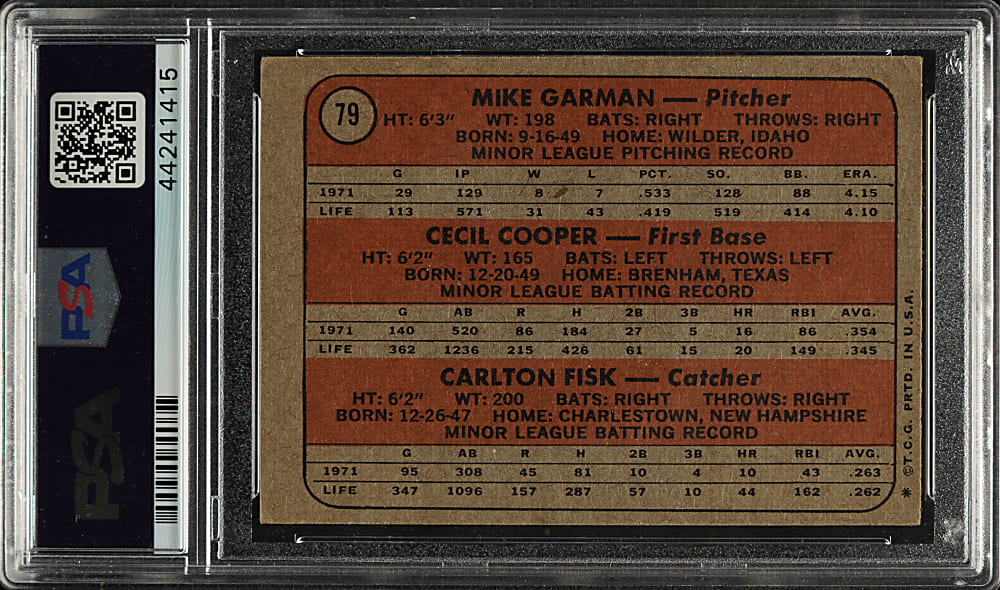 44241415
PSA
PSA
79
MIKE GARMAN — Pitcher
HT: 6'3" WT: 198 BATS: RIGHT THROWS: RIGHT
BORN: 9-16-49 HOME: WILDER, IDAHO
MINOR LEAGUE PITCHING RECORD
G IP W L PCT. SO. BB. ERA.
1971 29 129 8 7 .533 128 88 4.15
LIFE 113 571 31 43 .419 519 414 4.10
CECIL COOPER — First Base
HT: 6'2" WT: 165 BATS: LEFT THROWS: LEFT
BORN: 12-20-49 HOME: BRENHAM, TEXAS
MINOR LEAGUE BATTING RECORD
G AB R H 2B 3B HR RBI AVG.
1971 140 520 86 184 27 5 16 86 .354
LIFE 362 1236 215 426 61 15 20 149 .345
CARLTON FISK — Catcher
HT: 6'2" WT: 200 BATS: RIGHT THROWS: RIGHT
BORN: 12-26-47 HOME: CHARLESTOWN, NEW HAMPSHIRE
MINOR LEAGUE BATTING RECORD
G AB R H 2B 3B HR RBI AVG.
1971 95 308 45 81 10 4 10 43 .263
LIFE 347 1096 157 287 57 10 44 162 .262
* ©T.C.G. PRTD. IN U.S.A.